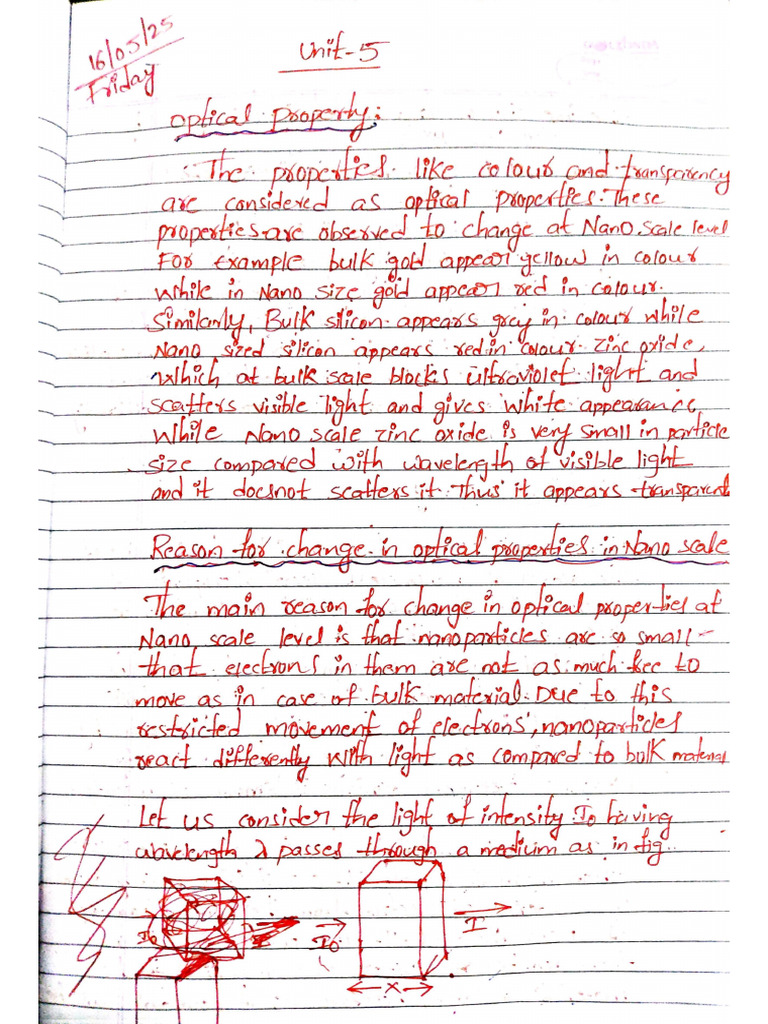 16/05/25
Friday
Unit-5
Optical Property:
The properties like colour and transparency
are considered as optical properties. These
properties are observed to change at Nano scale level
For Example bulk gold appear yellow in colour
while in Nano size gold appear red in colour.
Similarly, Bulk silicon appears grey in colour while
Nano sized silicon appears red in colour. Zinc oxide,
which at bulk scale blocks ultraviolet light and
scatters visible light and gives white appearance,
While Nano scale zinc oxide is very small in particle
size compared with wavelength of visible light
and it doesnot scatters it. Thus it appears transparent
Reason for change in optical properties in Nano scale
The main reason for change in optical properties at
Nano scale level is that nanoparticles are so small
that electrons in them are not as much free to
move as in case of bulk material. Due to this
restricted movement of electrons, nanoparticles
react differently with light as compared to bulk material
Let us consider the light of intensity I0 having
wavelength λ passes through a medium as in fig.
I0
I0
I
x